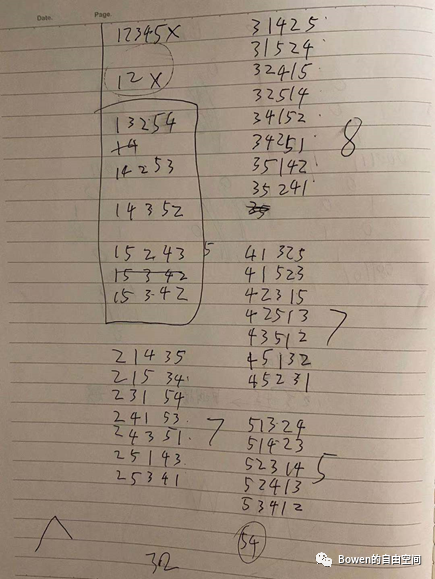 Date.
Page.
12345X
12X
13254
14
14253
14352
15243 5
15342
15342
21435
21534
23154
24153
24351 7
25143
25341
32
31425
31524
32415
32514
34152
34251 8
35142
35241
35
41325
41523
42315
42513
43512 7
45132
45231
51324
51423
52314 5
52413
53412
54
Bowen的自由空间